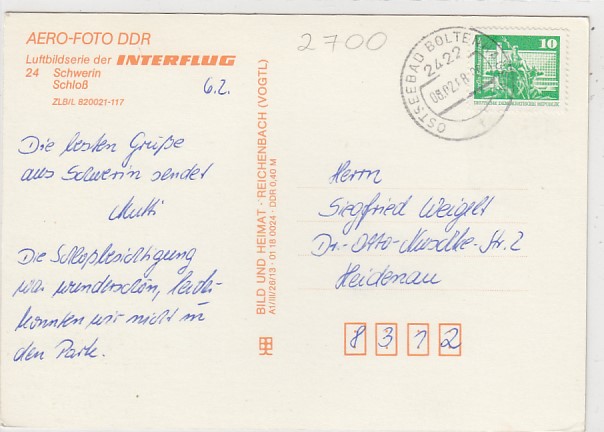 AERO-FOTO DDR
Luftbildserie der INTERFLUG
24 Schwerin
Schloß
ZLB/L 820021-117
6.2.
Die besten Grüße
aus Schwerin sendet
Mutti
Die Schloßbesichtigung
war wunderschön, leider
konnten wir nicht in
den Park.
BILD UND HEIMAT · REICHENBACH (VOGTL)
A1/III/26/13 · 01 18 0024 · DDR 0,40 M
2700
OSTSEEBAD BOLTEN
2422
08.02.8
10
DEUTSCHE DEMOKRATISCHE REPUBLIK
Herrn
Siegfried Weigelt
Dr.-Otto-Nuschke-Str. 2
Heidenau
8312